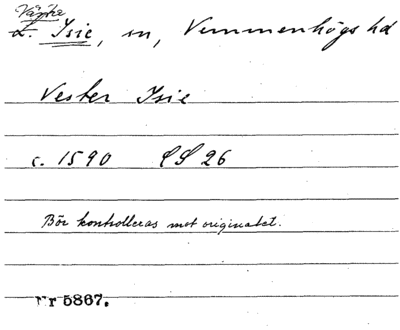 Västra
L. Isie, sn, Vemmenhögs hd
Vester Isie
c. 1590 LS 26
Bör kontrolleras mot originalet.
Nr 5867.